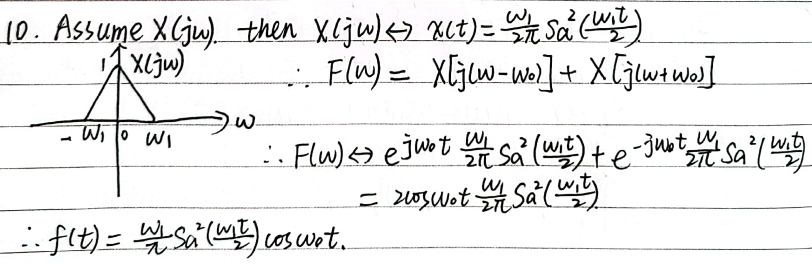 10. Assume X(jω). then X(jω)↔ x(t)=\frac{ω₁}{2π}Sa²(\frac{ω₁t}{2}).
1 X(jω)
∴ F(ω) = X[j(ω-ω₀)] + X[j(ω+ω₀)]
-ω₁ 0 ω₁ ω
∴ F(ω)↔ e^{jω₀t} \frac{ω₁}{2π}Sa²(\frac{ω₁t}{2}) + e^{-jω₀t}\frac{ω₁}{2π}Sa²(\frac{ω₁t}{2})
= 2cosω₀t \frac{ω₁}{2π}Sa²(\frac{ω₁t}{2}).
∴ f(t) = \frac{ω₁}{π}Sa²(\frac{ω₁t}{2})cosω₀t.